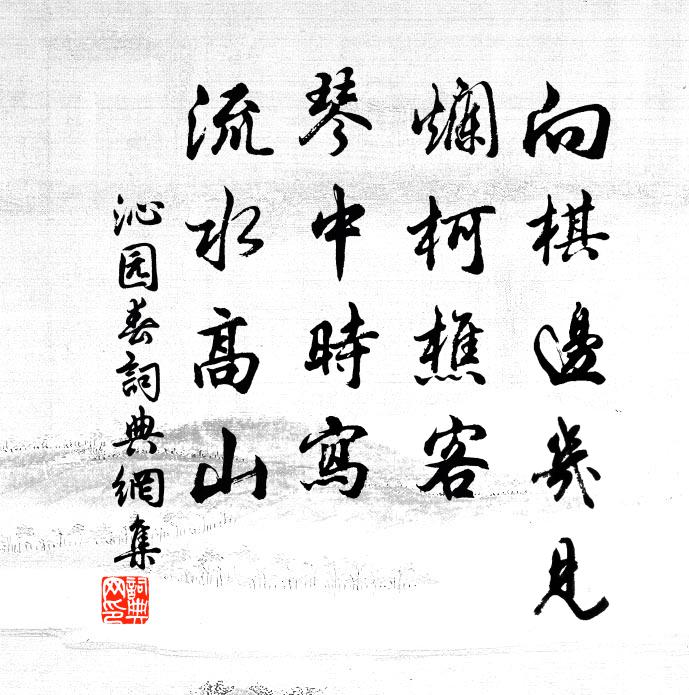 向棋邊幾見
爛柯樵客
琴中時寫
流水高山
沁园春詞典網集
詞典网印